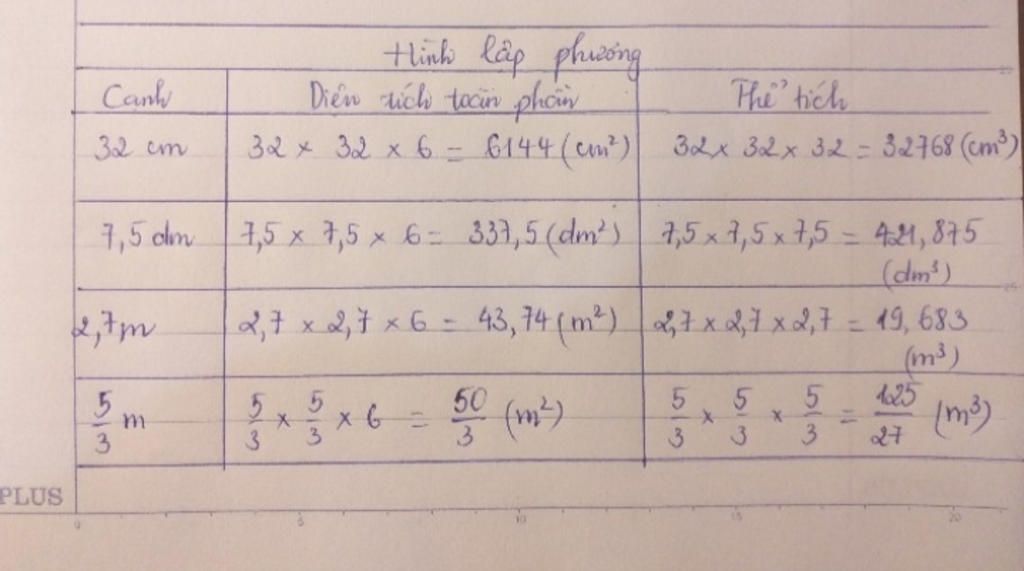 Hình lập phương
Cạnh Diện tích toàn phần Thể tích
32 cm 32 × 32 × 6 = 6144 (cm²) 32 × 32 × 32 = 32768 (cm³)
7,5 dm 7,5 × 7,5 × 6 = 337,5 (dm²) 7,5 × 7,5 × 7,5 = 421,875
(dm³)
2,7 m 2,7 × 2,7 × 6 = 43,74 (m²) 2,7 × 2,7 × 2,7 = 19,683
(m³)
5/3 m 5/3 × 5/3 × 6 = 50/3 (m²) 5/3 × 5/3 × 5/3 = 125/27 (m³)
PLUS
0 5 10 15 20